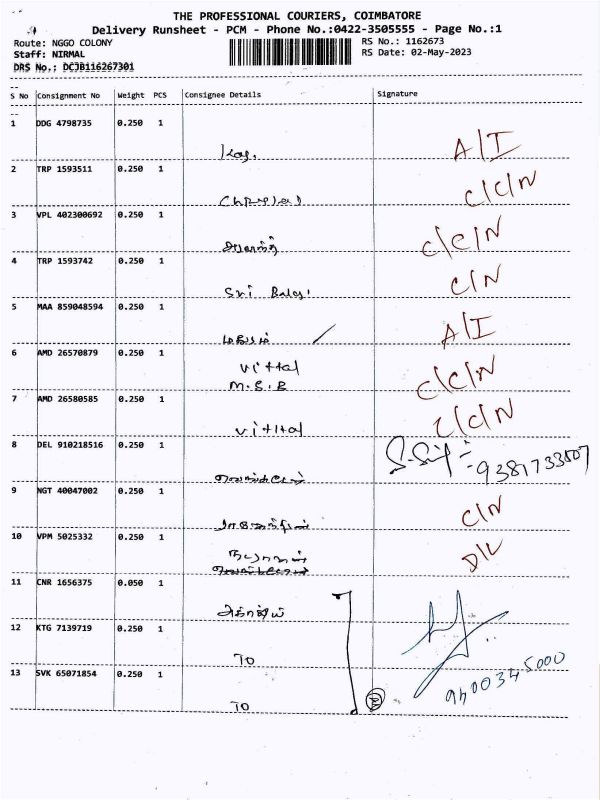 THE PROFESSIONAL COURIERS, COIMBATORE
Delivery Runsheet - PCM - Phone No.:0422-3505555 - Page No.:1
Route: NGGO COLONY
RS No.: 1162673
Staff: NIRMAL
RS Date: 02-May-2023
DRS No.: DCJB116267301
S No Consignment No Weight PCS Consignee Details Signature
1 DDG 4798735 0.250 1
A/I
2 TRP 1593511 0.250 1
C/C/N
3 VPL 402300692 0.250 1
C/C/N
4 TRP 1593742 0.250 1
Sri Balaji C/N
5 MAA 859048594 0.250 1
A/I
6 AMD 26570879 0.250 1
vittal
M.S.B C/C/N
7 AMD 26580585 0.250 1
vittal C/C/N
8 DEL 910218516 0.250 1
9381733507
9 NGT 40047002 0.250 1
C/N
10 VPM 5025332 0.250 1
நடராஜன் D/L
11 CNR 1656375 0.050 1
12 KTG 7139719 0.250 1
TO
13 SVK 65071854 0.250 1
9400345000
TO